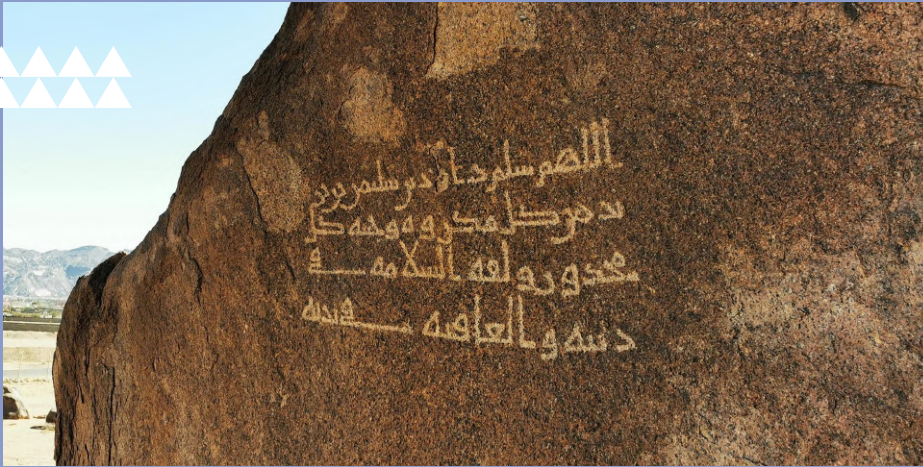 اللهم سلم بن سليمن بن يز
يد من كل مكروه وقه كل
محذور ولقه السلامه في
دنيه والعافيه في دينه